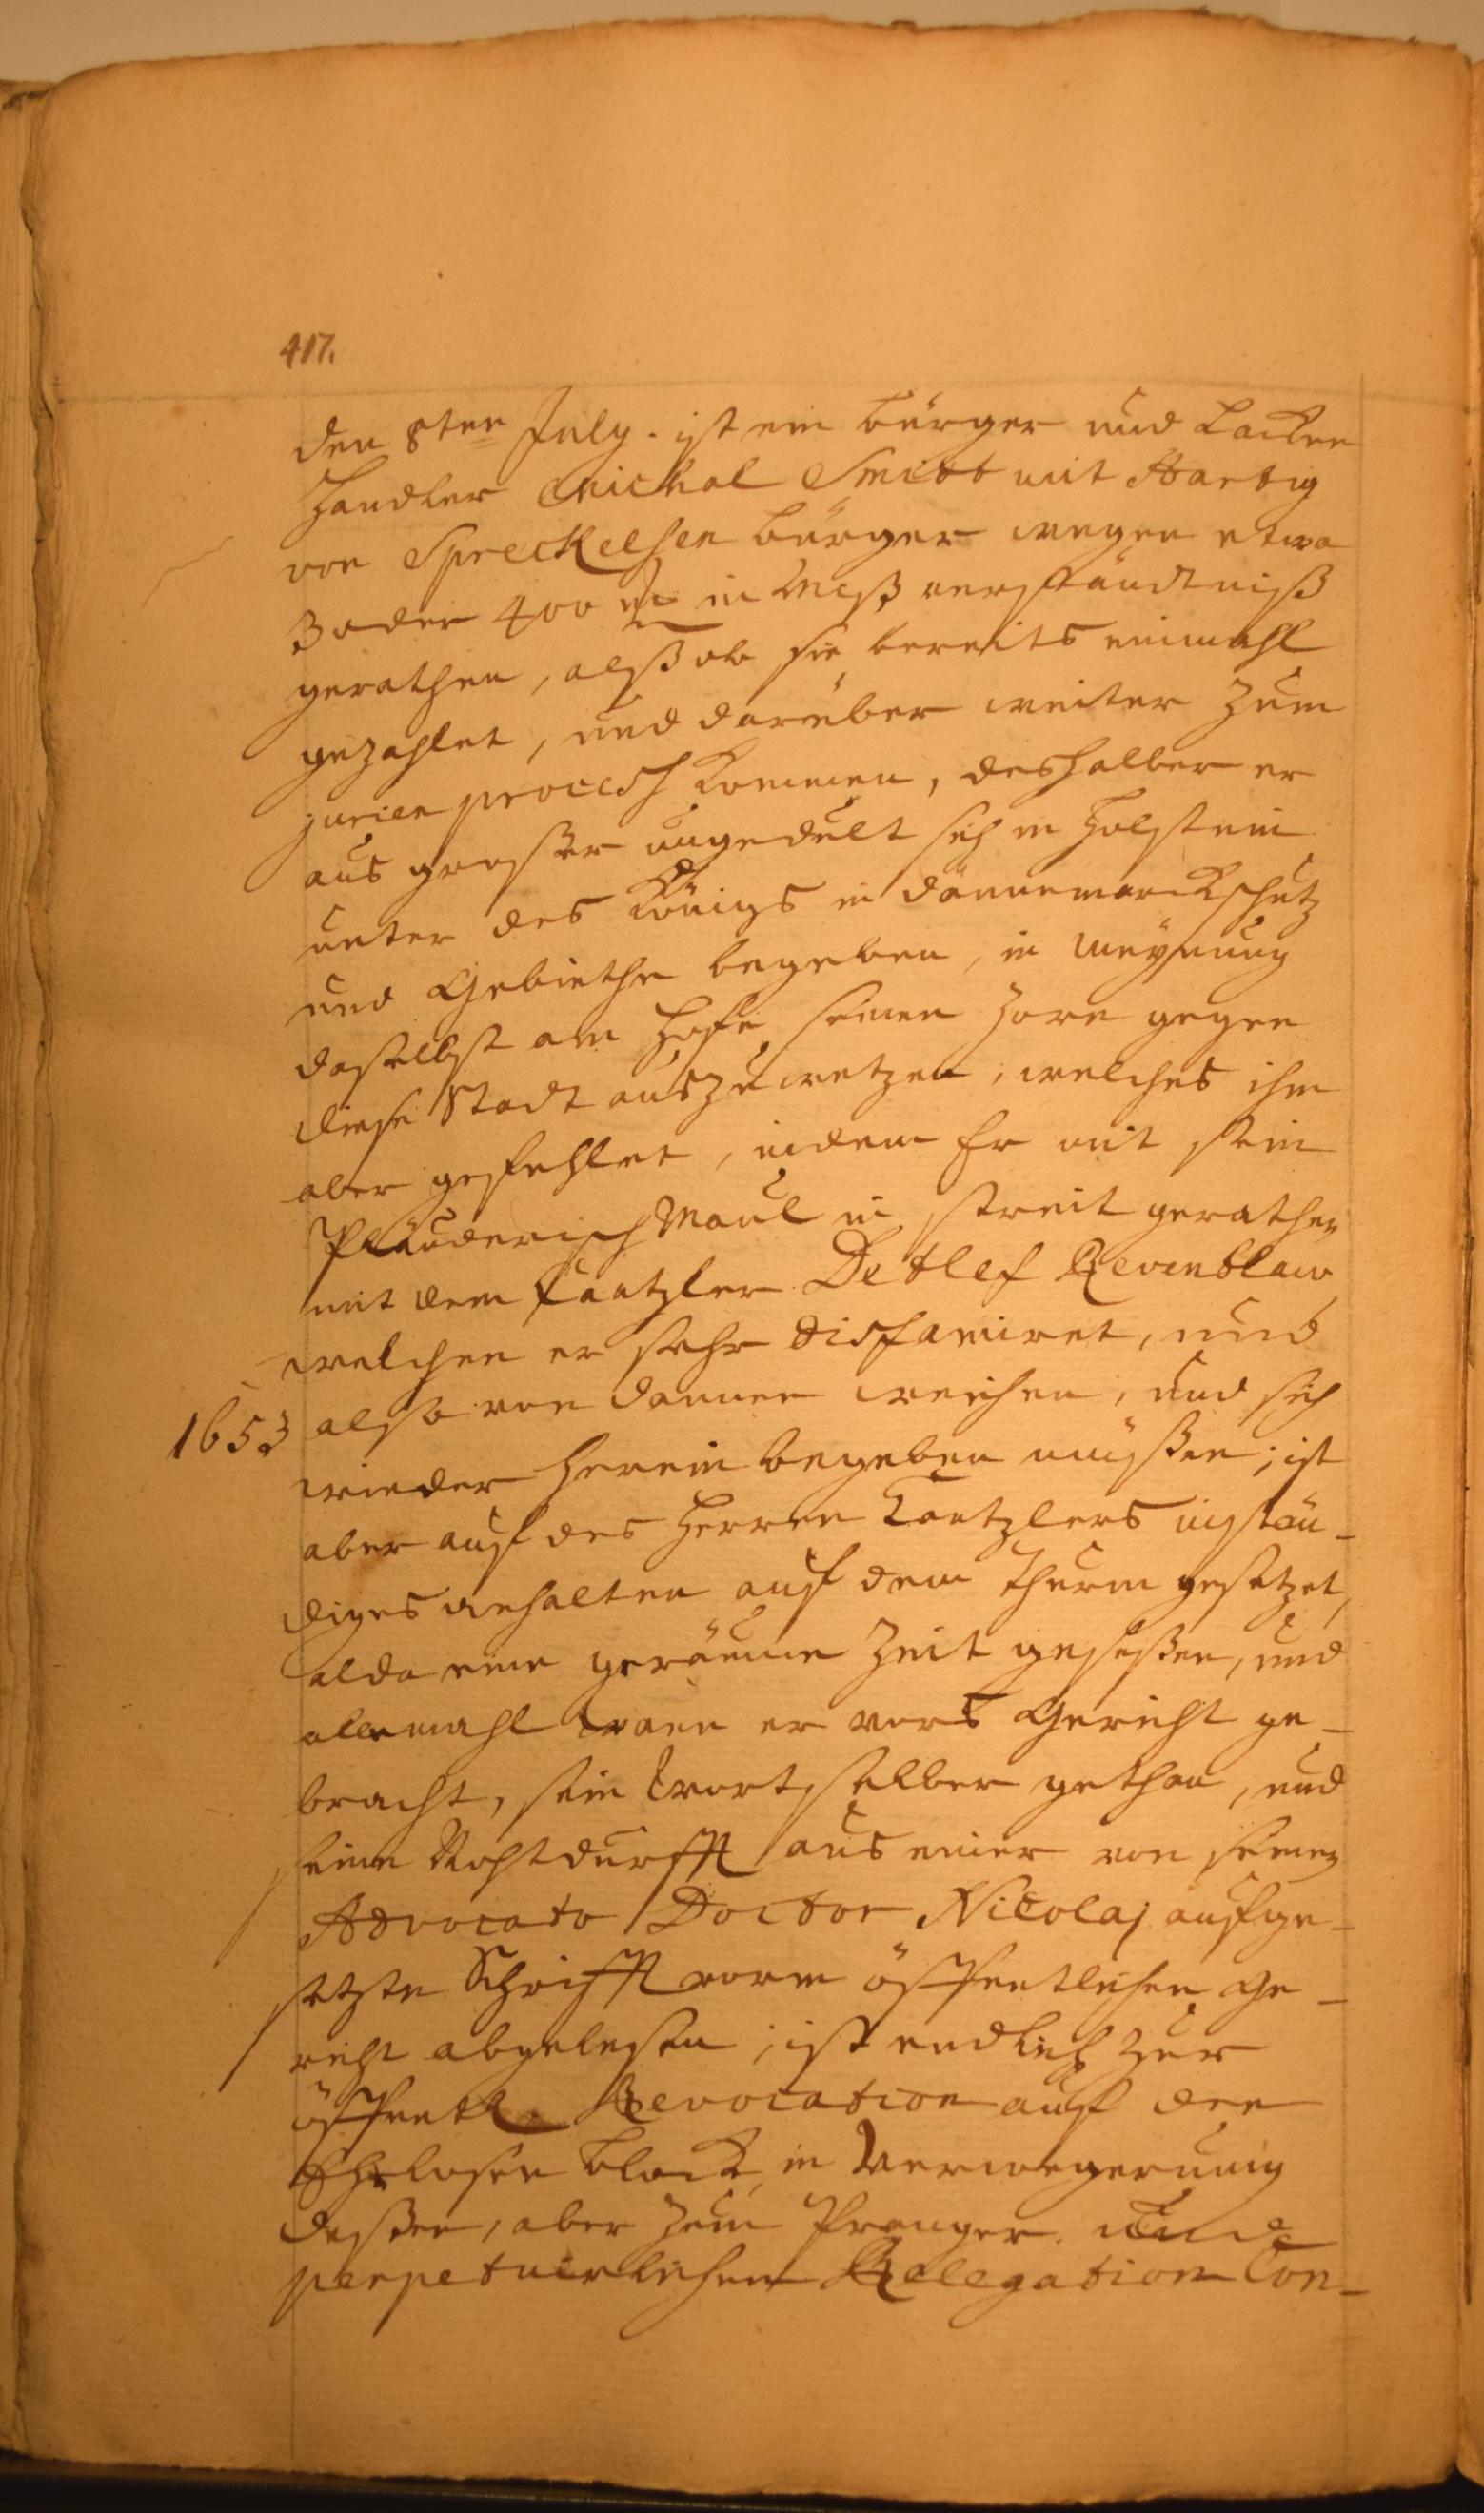 417.
den 8ten July. ist ein bürger und Lacken
Händler Michal Smitt mit Hartig
von Spreckelsen bürger wegen etwa
3 oder 400 in Mißverständtniß
gerathen, alß ob sie bereits einmahl
gezahlet, und darüber weiter zum
jurien process kommen, deshalber er
aus großer ungedult sich in Holstein
unter des Königs in Dännemarck schutz
und Gebiethe begeben, in meynung
daselbst am Hofe seinen Zorn gegen
diese Stadt auszuwetzen, welches ihm
aber gefehlet, indem Er mit sein
Pläuderisch Maul in streit gerathen
mit dem Cantzler Detlef Revenblaw
welchen er sehr disfamiret, und
1653 also von dannen weichen, und sich
wieder herein begeben müßen; ist
aber auf des Herren Cantzlers instän-
diges anhalten auf dem Thurm gesetzet,
alda eine geräume Zeit geseßen, und
allemahl wann er vors Gericht ge-
bracht, sein Wort selber gethan, und
seine Nohtdurfft aus einer von seinen
Advocato Doctor Nicolaj aufge-
setzte Schrifft vorm öffentlichen Ge-
richt abgelesen; ist endlich zur
öffentl. Revocation auf den
Ehrlosen block, in Verwegerung
deßen, aber zum Pranger und
perpetuirlichen Relegation Con-